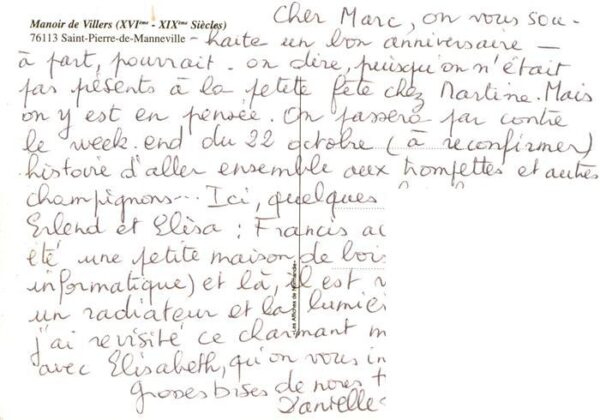 Manoir de Villers (XVIème - XIXème Siècles)
76113 Saint-Pierre-de-Manneville
Cher Marc, on vous sou-
haite un bon anniversaire —
à part, pourrait-on dire, puisqu'on n'était
pas présents à la petite fête chez Martine. Mais
on y est en pensée. On passera par contre
le week-end du 22 octobre (à reconfirmer)
histoire d'aller ensemble aux trompettes et autres
champignons... Ici, quelques
Erlend et Elisa : Francis
été une petite maison de bois
informatique) et là, il est
un radiateur et la
j'ai revisité ce charmant
avec Elisabeth, qu'on vous
Grosses bises de nous
Danielle
Les Affiches de Normandie